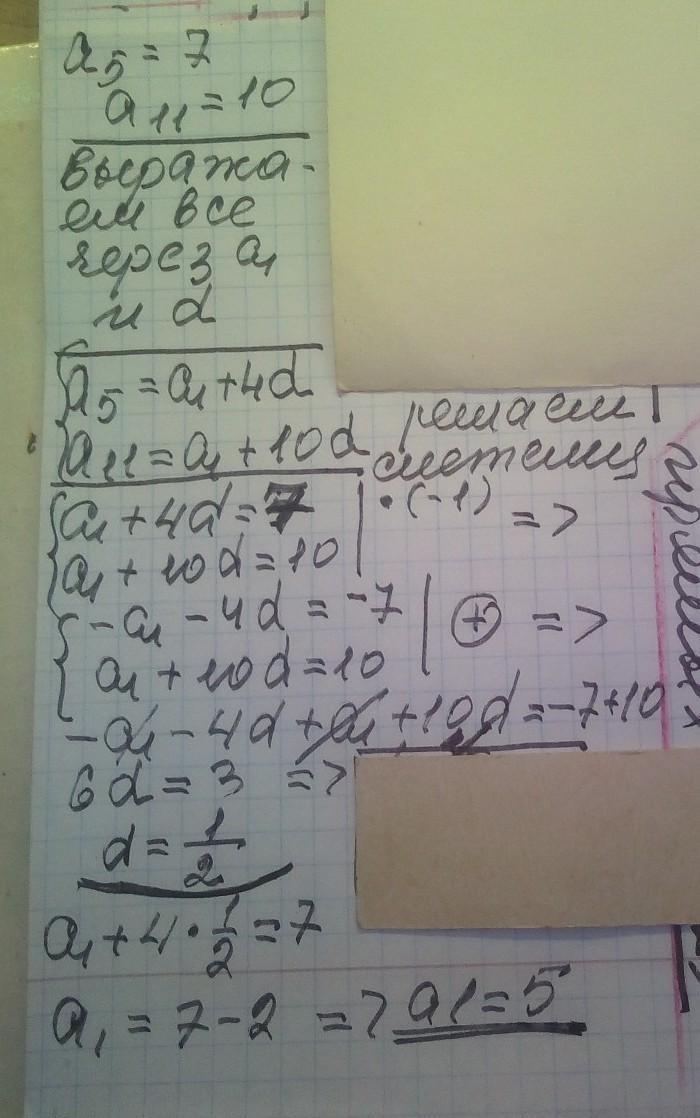 a₅ = 7
a₁₁ = 10
выража-
ем все
через a₁
и d
a₅ = a₁ + 4d
a₁₁ = a₁ + 10d
решаем
систему
a₁ + 4d = 7 | · (-1) =>
a₁ + 10d = 10
-a₁ - 4d = -7 | ⊕ =>
a₁ + 10d = 10
-a₁ - 4d + a₁ + 10d = -7 + 10
6d = 3 =>
d = 1/2
a₁ + 4 · 1/2 = 7
a₁ = 7 - 2 => a1 = 5